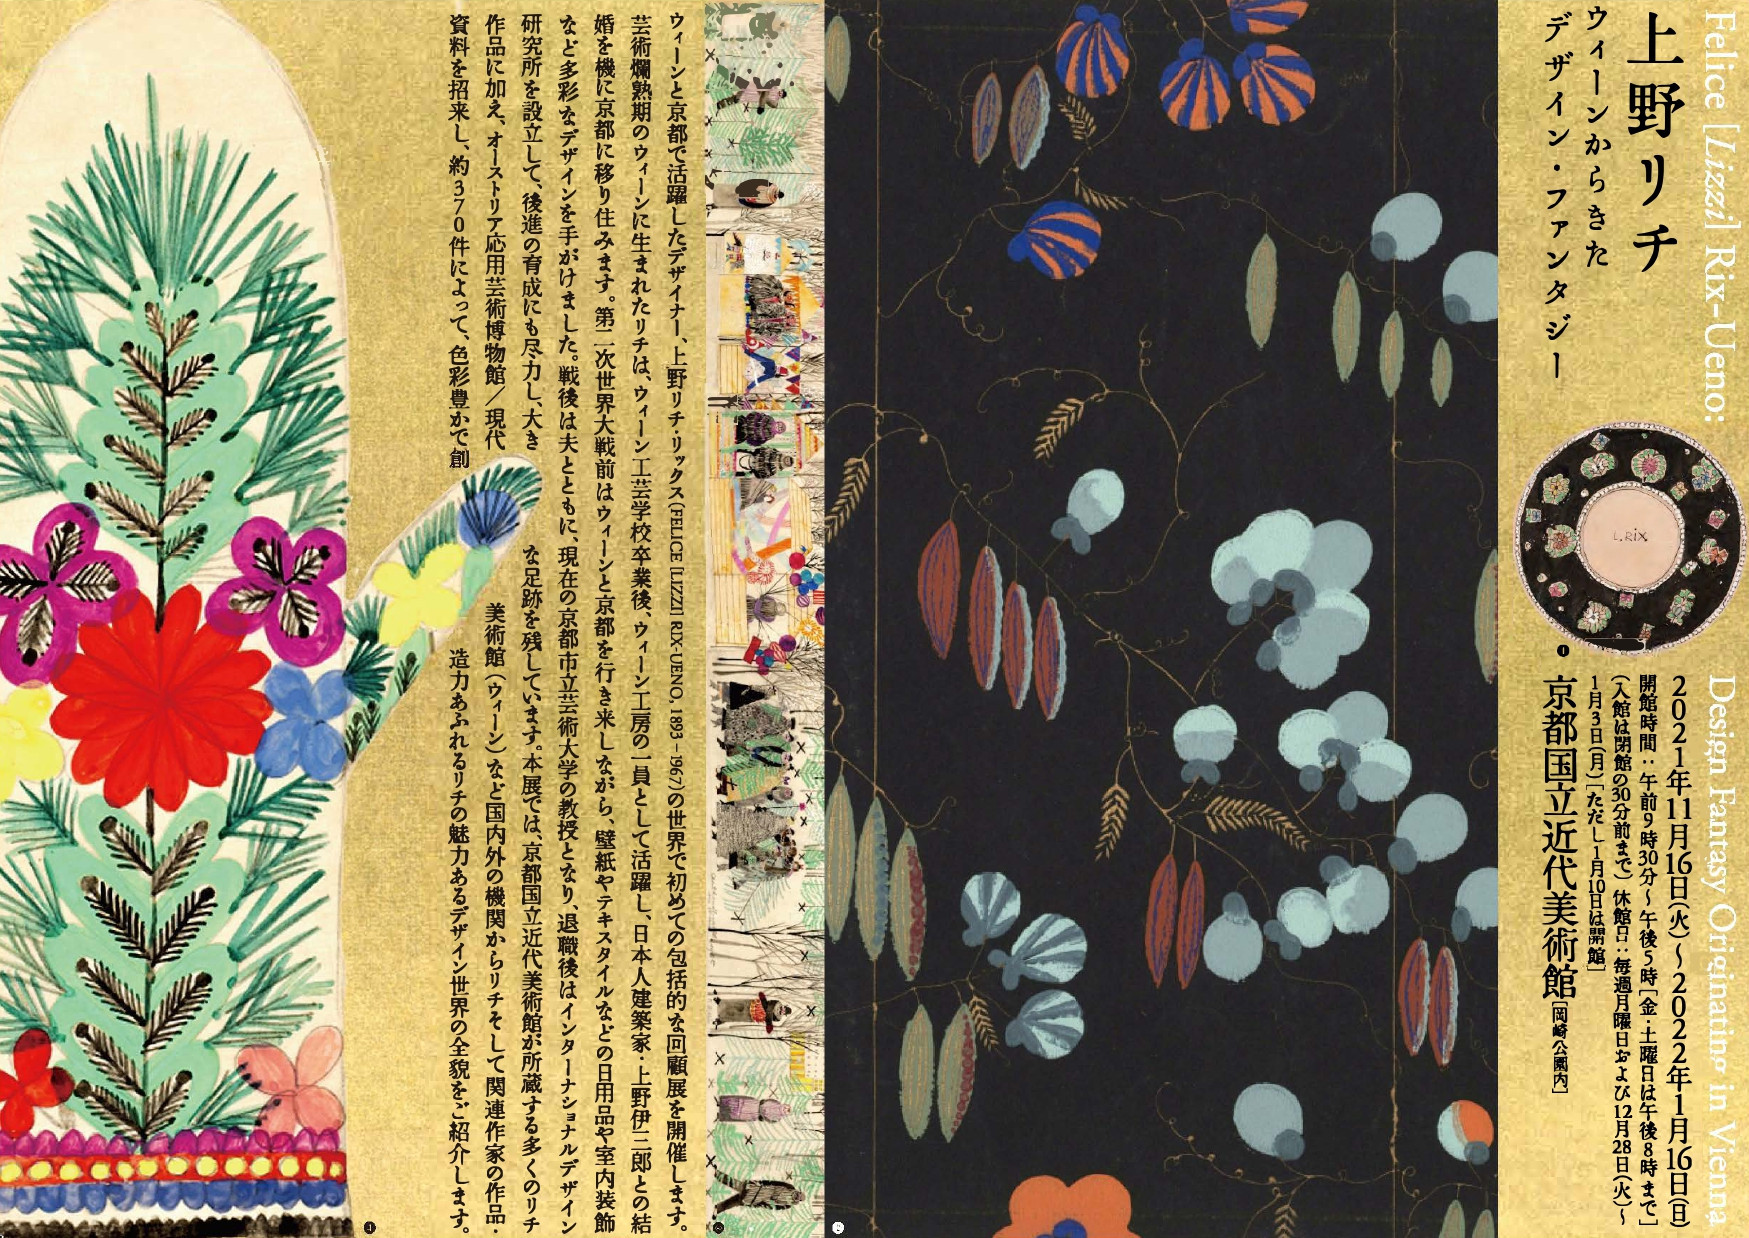 Felice [Lizzi] Rix-Ueno:
Design Fantasy Originating in Vienna
上野リチ
ウィーンからきた
デザイン・ファンタジー
L.RiX
❶
2021年11月16日(火)〜2022年1月16日(日)
開館時間：午前9時30分〜午後5時[金・土曜日は午後8時まで]
(入館は閉館の30分前まで) 休館日：毎週月曜日および12月28日(火)〜
1月3日(月)[ただし1月10日は開館]
京都国立近代美術館[岡崎公園内]
ウィーンと京都で活躍したデザイナー、上野リチ・リックス(FELICE [LIZZI] RIX-UENO, 1893–1967)の世界で初めての包括的な回顧展を開催します。
芸術爛熟期のウィーンに生まれたリチは、ウィーン工芸学校卒業後、ウィーン工房の一員として活躍し、日本人建築家・上野伊三郎との結
婚を機に京都に移り住みます。第二次世界大戦前はウィーンと京都を行き来しながら、壁紙やテキスタイルなどの日用品や室内装飾
など多彩なデザインを手がけました。戦後は夫とともに、現在の京都市立芸術大学の教授となり、退職後はインターナショナルデザイン
研究所を設立して、後進の育成にも尽力し、大きな足跡を残しています。本展では、京都国立近代美術館が所蔵する多くのリチ
作品に加え、オーストリア応用芸術博物館／現代美術館（ウィーン）など国内外の機関からリチそして関連作家の作品・
資料を招来し、約370件によって、色彩豊かで創造力あふれるリチの魅力あるデザイン世界の全貌をご紹介します。